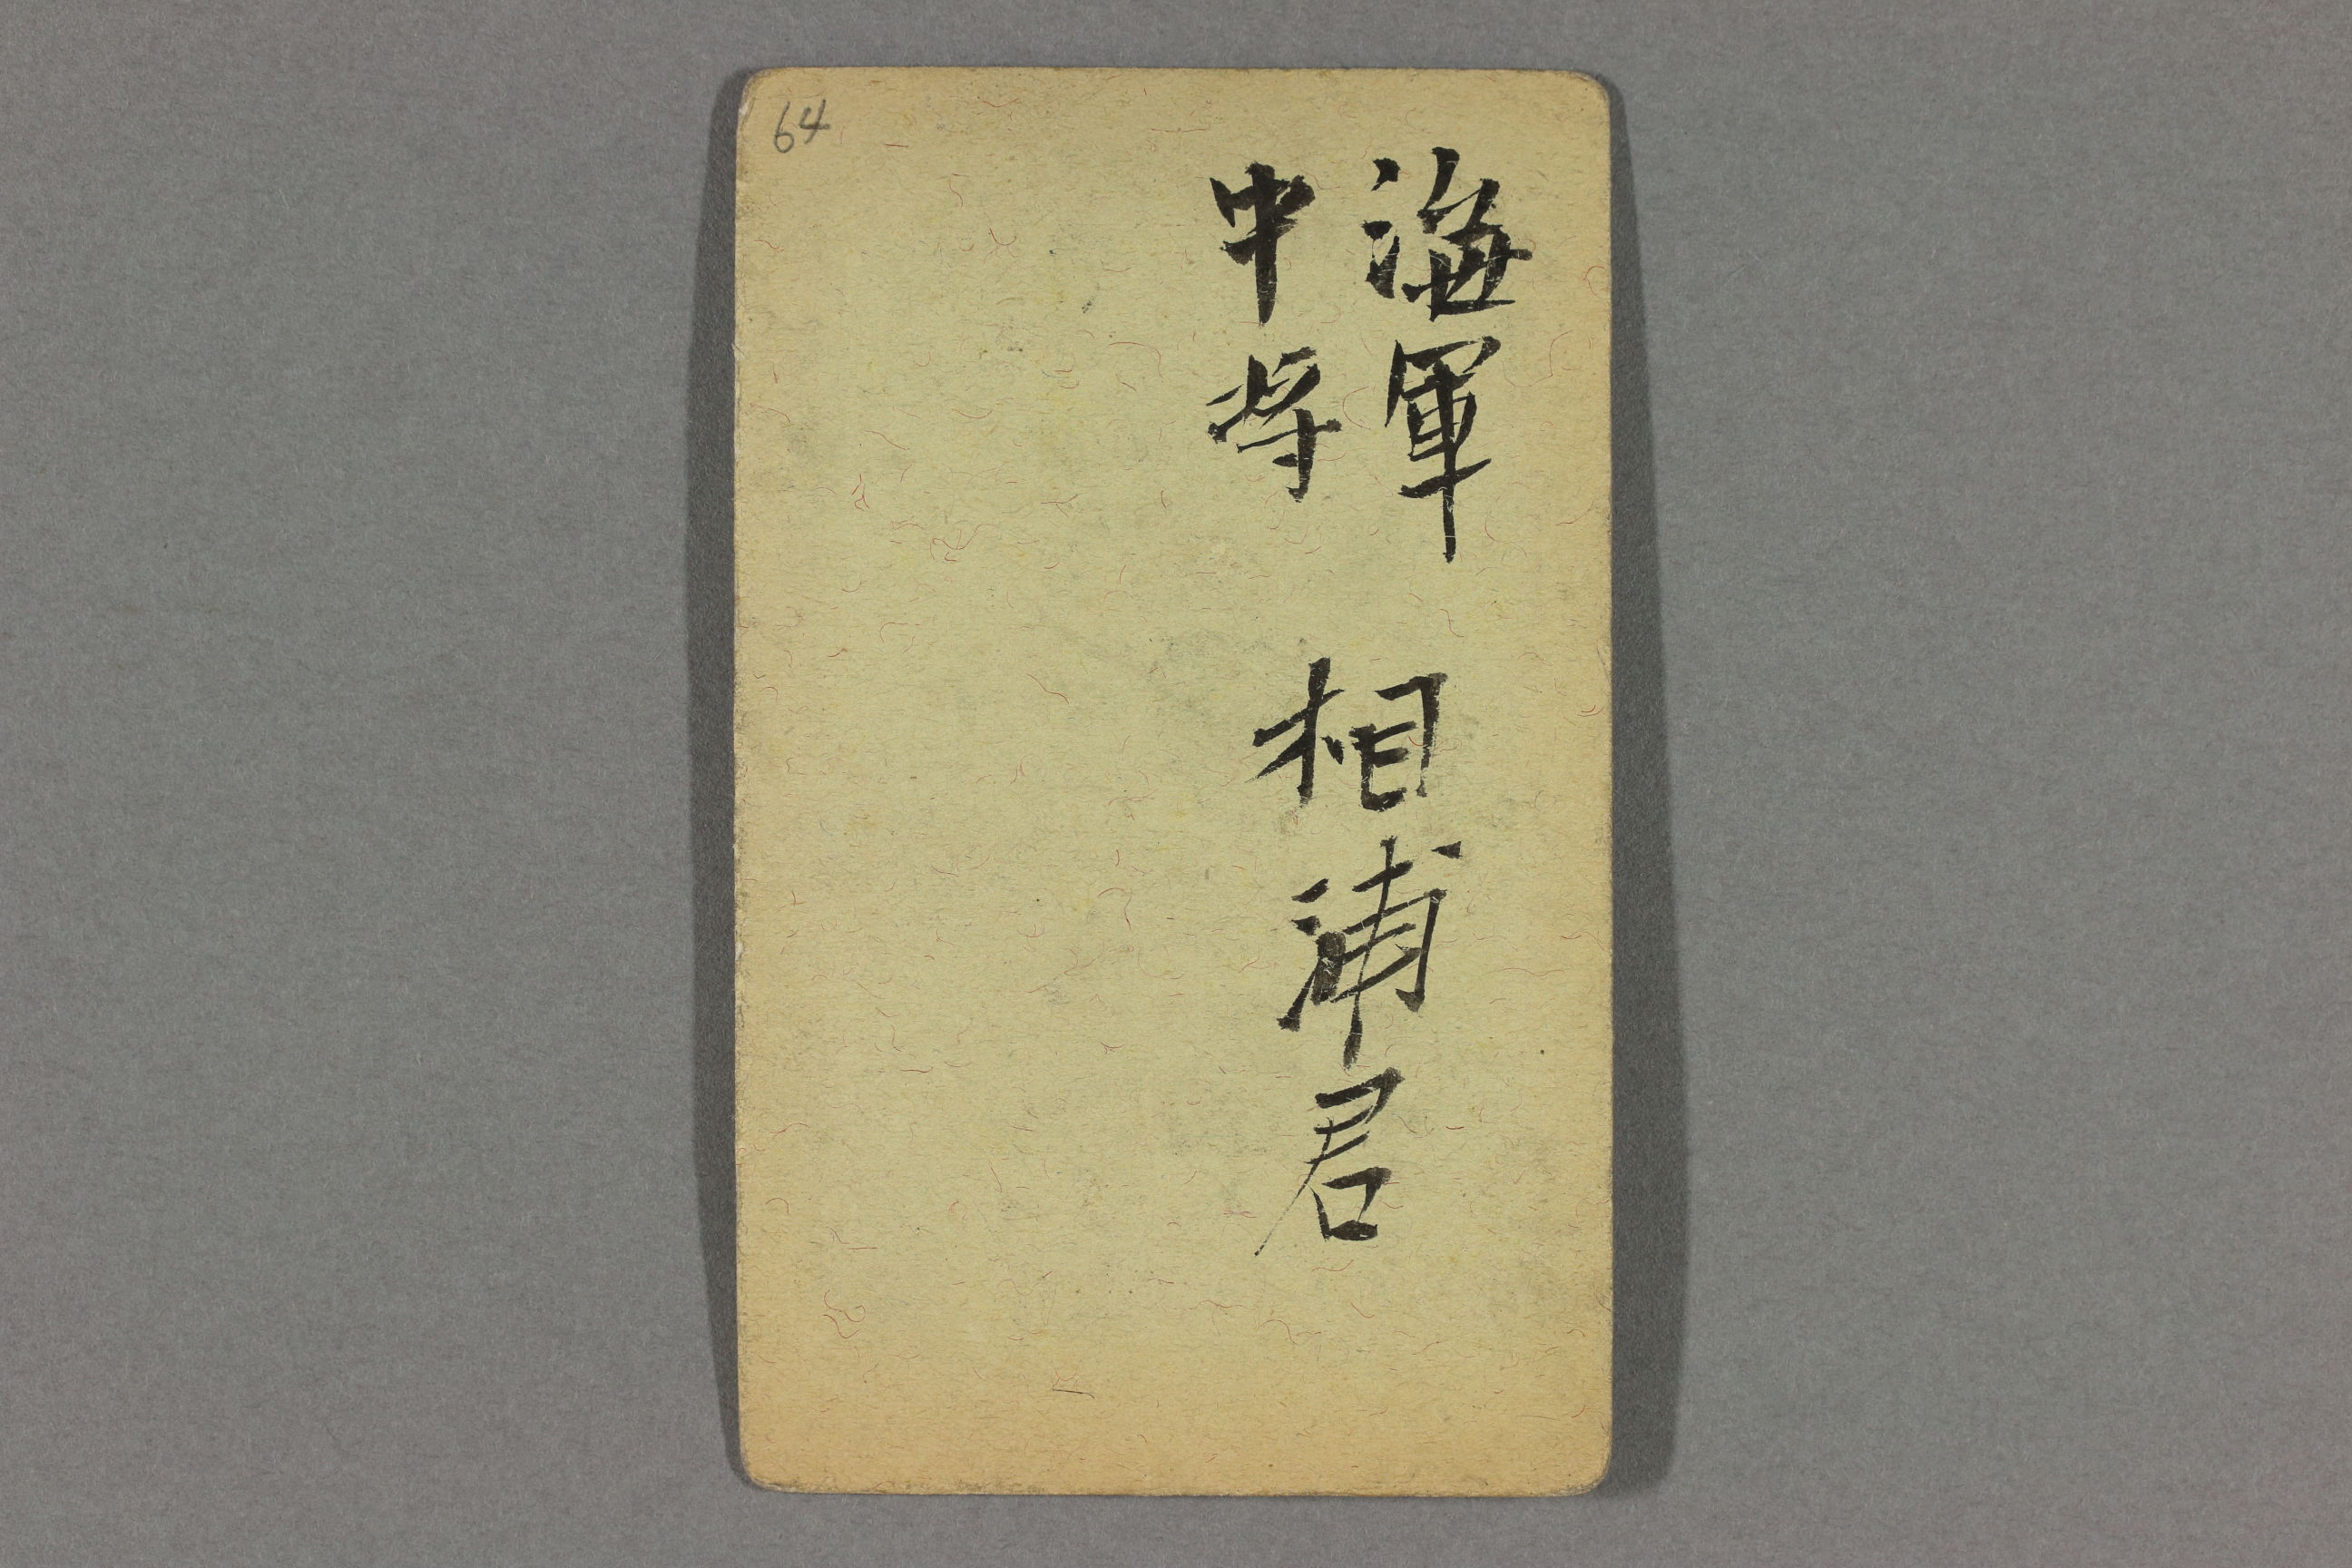 64
海軍
中将
相浦君